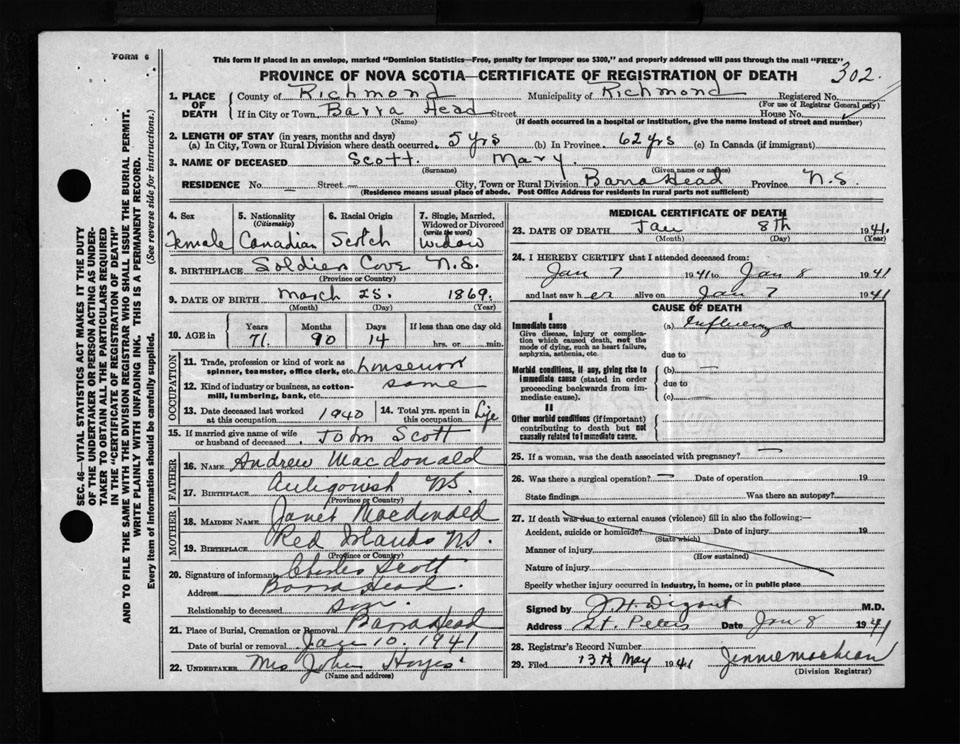 FORM 6
This form if placed in an envelope, marked "Dominion Statistics—Free, penalty for improper use $300," and properly addressed will pass through the mail "FREE"
PROVINCE OF NOVA SCOTIA—CERTIFICATE OF REGISTRATION OF DEATH
302.
1. PLACE OF DEATH
County of Richmond Municipality of Richmond Registered No.
(For use of Registrar General only)
If in City or Town, Barra Head Street House No.
(Name) (If death occurred in a hospital or institution, give the name instead of street and number)
2. LENGTH OF STAY (in years, months and days)
(a) In City, Town or Rural Division where death occurred. 5 yrs (b) In Province. 62 yrs (c) In Canada (if immigrant)
3. NAME OF DECEASED Scott. Mary.
(Surname) (Given name or names)
RESIDENCE No. — Street — City, Town or Rural Division Barra Head Province N.S.
(Residence means usual place of abode. Post Office Address for residents in rural parts not sufficient)
4. Sex female
5. Nationality (Citizenship) Canadian
6. Racial Origin Scotch
7. Single, Married, Widowed or Divorced (write the word) Widow
8. BIRTHPLACE Soldiers Cove N.S.
(Province or Country)
9. DATE OF BIRTH March 25. 1869.
(Month) (Day) (Year)
10. AGE in Years Months Days If less than one day old
71. 90 14 hrs. or min.
OCCUPATION
11. Trade, profession or kind of work as spinner, teamster, office clerk, etc. housework
12. Kind of industry or business, as cotton-mill, lumbering, bank, etc. same
13. Date deceased last worked at this occupation 1940
14. Total yrs. spent in this occupation Life
15. If married give name of wife or husband of deceased John Scott
FATHER
16. NAME Andrew Macdonald
17. BIRTHPLACE Antigonish N.S.
(Province or Country)
MOTHER
18. MAIDEN NAME Janet Macdonald
19. BIRTHPLACE Red Islands N.S.
(Province or Country)
20. Signature of informant Charles Scott
Address Barra Head.
Relationship to deceased son.
21. Place of Burial, Cremation or Removal Barra Head
Date of burial or removal Jan 10. 1941
22. UNDERTAKER Mrs John Hayes.
(Name and address)
MEDICAL CERTIFICATE OF DEATH
23. DATE OF DEATH Jan 8th 1941.
(Month) (Day) (Year)
24. I HEREBY CERTIFY that I attended deceased from:
Jan 7 1941 to Jan 8 1941
and last saw her alive on Jan 7 1941
CAUSE OF DEATH
I
Immediate cause (a) Influenza
Give disease, injury or complication which caused death, not the mode of dying, such as heart failure, asphyxia, asthenia, etc.
due to
Morbid conditions, if any, giving rise to immediate cause (stated in order proceeding backwards from immediate cause).
(b) —
due to
(c) —
II
Other morbid conditions (if important) contributing to death but not causally related to immediate cause.
25. If a woman, was the death associated with pregnancy? —
26. Was there a surgical operation? — Date of operation 19
State findings Was there an autopsy?
27. If death was due to external causes (violence) fill in also the following:—
Accident, suicide or homicide? Date of injury 19
(State which)
Manner of injury
(How sustained)
Nature of injury
Specify whether injury occurred in industry, in home, or in public place
Signed by M.D.
Address St. Peters Date Jan 8 1941
28. Registrar's Record Number
29. Filed 13th May 1941 Jennie
(Division Registrar)
SEC. 46—VITAL STATISTICS ACT MAKES IT THE DUTY
OF THE UNDERTAKER OR PERSON ACTING AS UNDER-
TAKER TO OBTAIN ALL THE PARTICULARS REQUIRED
IN THE "CERTIFICATE OF REGISTRATION OF DEATH"
AND TO FILE THE SAME WITH THE DIVISION REGISTRAR WHO SHALL ISSUE THE BURIAL PERMIT.
WRITE PLAINLY WITH UNFADING INK. THIS IS A PERMANENT RECORD.
Every item of information should be carefully supplied. (See reverse side for instructions.)